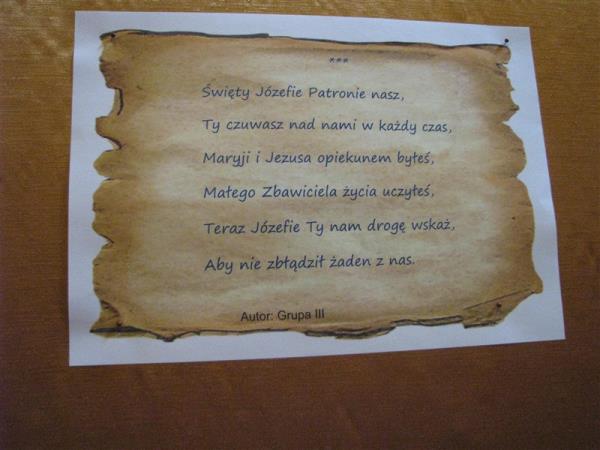 ***
Święty Józefie Patronie nasz,
Ty czuwasz nad nami w każdy czas,
Maryji i Jezusa opiekunem byłeś,
Małego Zbawiciela życia uczyłeś,
Teraz Józefie Ty nam drogę wskaż,
Aby nie zbłądził żaden z nas.
Autor: Grupa III